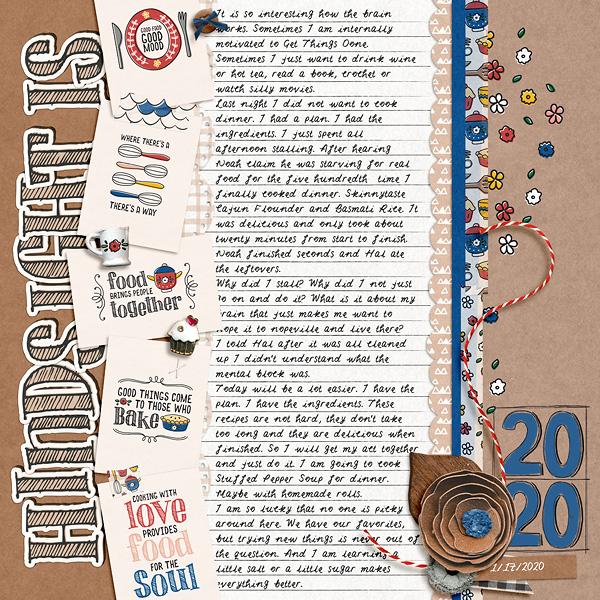 HINDSIGHT IS
GOOD FOOD
GOOD
MOOD
WHERE THERE'S A
THERE'S A WAY
food
BRINGS PEOPLE
together
GOOD THINGS COME
TO THOSE WHO
Bake
COOKING WITH
love
PROVIDES
food
FOR THE
Soul
It is so interesting how the brain
works. Sometimes I am internally
motivated to Get Things Done.
Sometimes I just want to drink wine
or hot tea, read a book, crochet or
watch silly movies.
Last night I did not want to cook
dinner. I had a plan. I had the
ingredients. I just spent all
afternoon stalling. After hearing
Noah claim he was starving for real
food for the five hundredth time I
finally cooked dinner. Skinnytaste
Cajun Flounder and Basmati Rice. It
was delicious and only took about
twenty minutes from start to finish.
Noah finished seconds and Hal ate
the leftovers.
Why did I stall? Why did I not just
go on and do it? What is it about my
brain that just makes me want to
nope it to nopeville and live there?
I told Hal after it was all cleaned
up I didn't understand what the
mental block was.
Today will be a lot easier. I have the
plan. I have the ingredients. These
recipes are not hard, they don't take
too long and they are delicious when
finished. So I will get my act together
and just do it. I am going to cook
Stuffed Pepper Soup for dinner.
Maybe with homemade rolls.
I am so lucky that no one is picky
around here. We have our favorites,
but trying new things is never out of
the question. And I am learning a
little salt or a little sugar makes
everything better.
20
20
1/17/2020